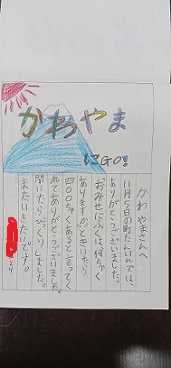 かわやま
にGO!
かわやまさんへ
11月5日の町たんけんでは、
ありがとうございました。
おみせにふくは、何ちゃく
ありますか？ときいたら、
四〇〇ちゃくあると言ってく
れてありがとうございました。
聞いたらびっくりしました。
またいきたいです。
より